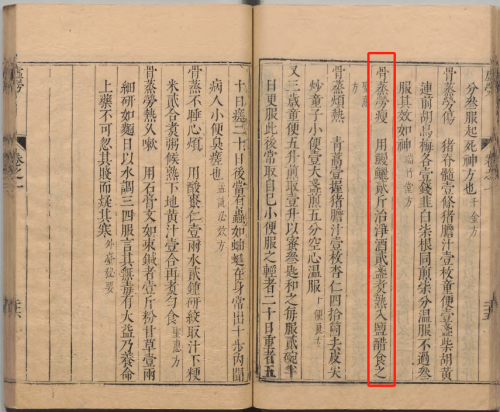 分叅服起死神方也千金方
骨蒸勞傷 猪脊髓壹條猪膽汁壹枚童便壹盞柴胡黃
連前胡烏梅各壹錢韮白柒根同煎柒分溫服不過叅
服其效如神瑞竹堂方
骨蒸勞瘦 用鰻鱺貳斤治淨酒貳盞煮熟入鹽醋食之
聖惠方
骨蒸煩熱 青蒿壹握猪膽汁壹枚杏仁四拾箇去皮尖
炒童子小便壹大盞煎五分空心溫服十便良方
又三歲童便五升煎取壹升以蜜叅匙和之每服貳碗半
日更服此後當取自巳小便服之輕者二十日重者五
十日瘥二十日後當有蟲如蚰蜓在身常出十步內聞
病人小便臭瘥也
骨蒸不睡心煩 用酸棗仁壹兩水貳鍾研絞取汁下粳
米貳合煮粥候熟下地黃汁壹合再煮勻食聖惠方
骨蒸勞熱久嗽 用石膏文如束鍼者壹斤粉甘草壹兩
細研如麵日以水調三四服言其無毒有大益乃養命
上藥不可忽其賤而疑其寒外臺秘要
虛勞
卷之一